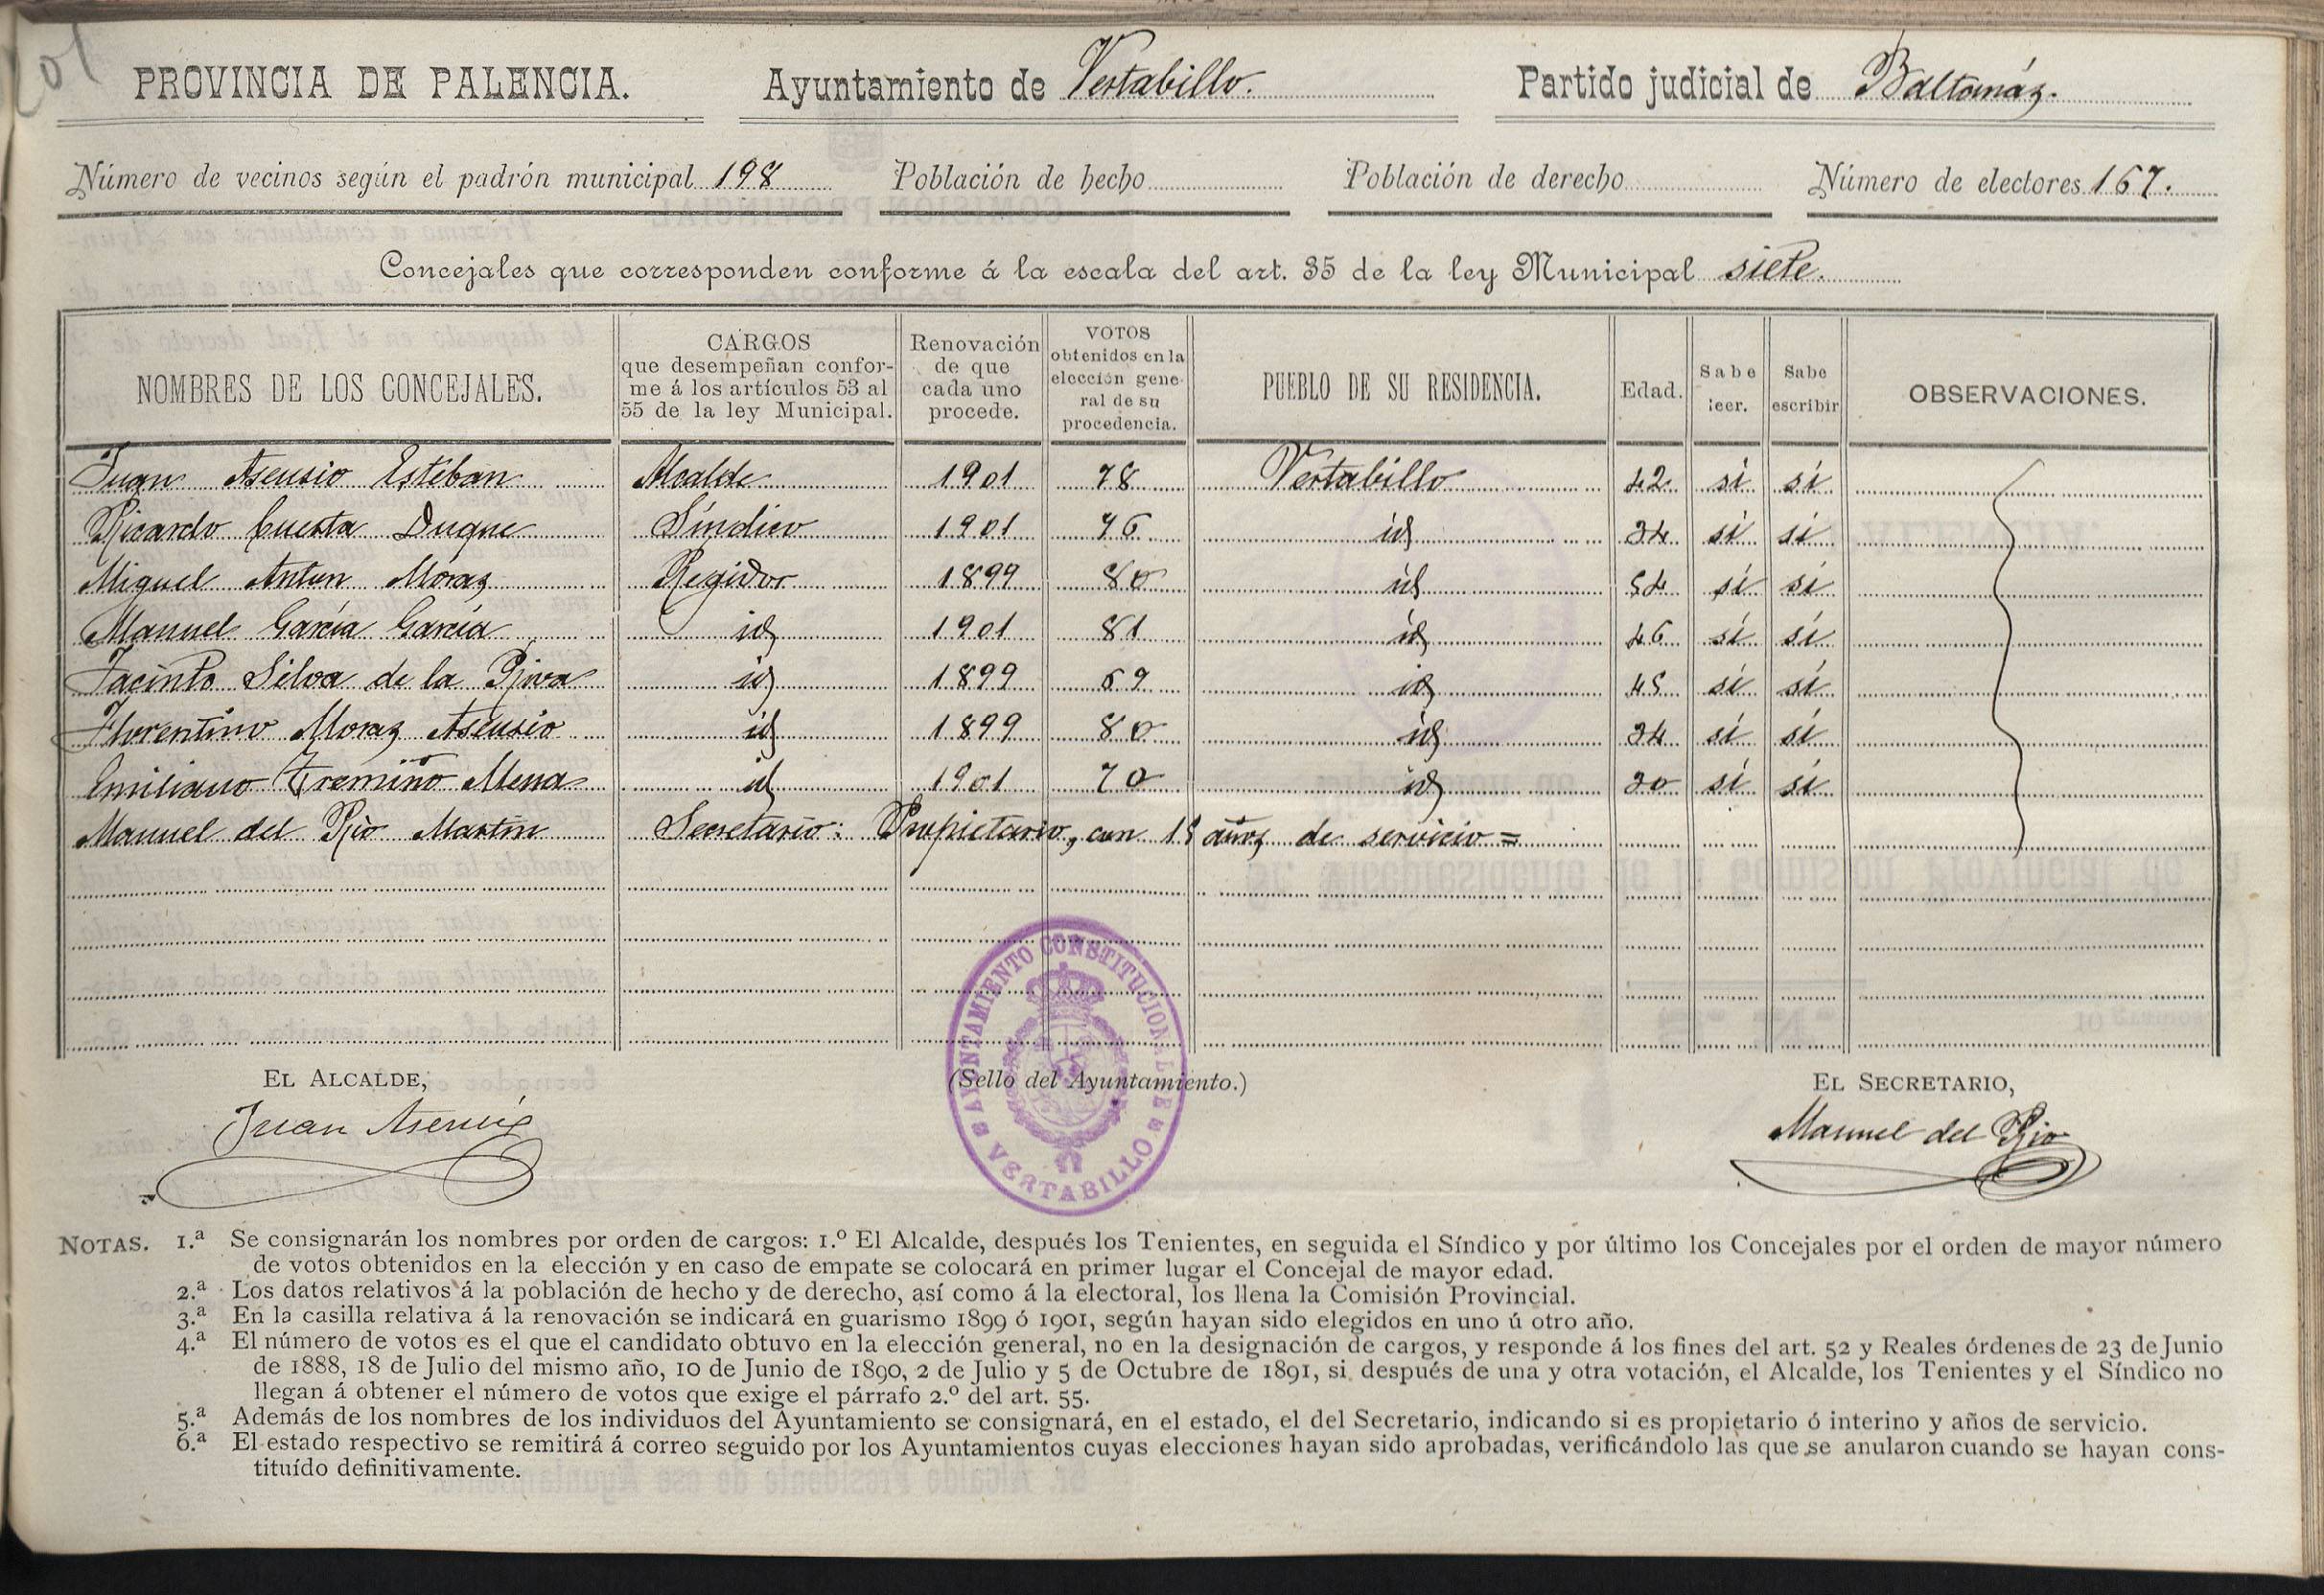 201
PROVINCIA DE PALENCIA. Ayuntamiento de Vertabillo. Partido judicial de Baltanáz.
Número de vecinos según el padrón municipal 198 Población de hecho Población de derecho Número de electores 167.
Concejales que corresponden conforme á la escala del art. 35 de la ley Municipal siete.
NOMBRES DE LOS CONCEJALES. CARGOS que desempeñan conforme á los artículos 53 al 55 de la ley Municipal. Renovación de que cada uno procede. VOTOS obtenidos en la elección general de su procedencia. PUEBLO DE SU RESIDENCIA. Edad. Sabe leer. Sabe escribir OBSERVACIONES.
Juan Asensio Esteban Alcalde 1901 78 Vertabillo 42 sí sí
Ricardo Cuesta Duque Síndico 1901 76 id 34 sí sí
Miguel Antun Moraz Regidor 1899 80 id 54 sí sí
Manuel García García id 1901 81 id 46 sí sí
Jacinto Silva de la Riva id 1899 69 id 45 sí sí
Florentino Moraz Asensio id 1899 80 id 34 sí sí
Emiliano Tremiño Mena id 1901 70 id 30 sí sí
Manuel del Río Martín Secretario: Propietario, con 15 años de servicio =
EL ALCALDE, (Sello del Ayuntamiento.) EL SECRETARIO,
Juan Asensio Manuel del Rio
AYUNTAMIENTO CONSTITUCIONAL DE VERTABILLO
NOTAS. 1.ª Se consignarán los nombres por orden de cargos: 1.º El Alcalde, después los Tenientes, en seguida el Síndico y por último los Concejales por el orden de mayor número
de votos obtenidos en la elección y en caso de empate se colocará en primer lugar el Concejal de mayor edad.
2.ª Los datos relativos á la población de hecho y de derecho, así como á la electoral, los llena la Comisión Provincial.
3.ª En la casilla relativa á la renovación se indicará en guarismo 1899 ó 1901, según hayan sido elegidos en uno ú otro año.
4.ª El número de votos es el que el candidato obtuvo en la elección general, no en la designación de cargos, y responde á los fines del art. 52 y Reales órdenes de 23 de Junio
de 1888, 18 de Julio del mismo año, 10 de Junio de 1890, 2 de Julio y 5 de Octubre de 1891, si después de una y otra votación, el Alcalde, los Tenientes y el Síndico no
llegan á obtener el número de votos que exige el párrafo 2.º del art. 55.
5.ª Además de los nombres de los individuos del Ayuntamiento se consignará, en el estado, el del Secretario, indicando si es propietario ó interino y años de servicio.
6.ª El estado respectivo se remitirá á correo seguido por los Ayuntamientos cuyas elecciones hayan sido aprobadas, verificándolo las que se anularon cuando se hayan cons-
tituído definitivamente.